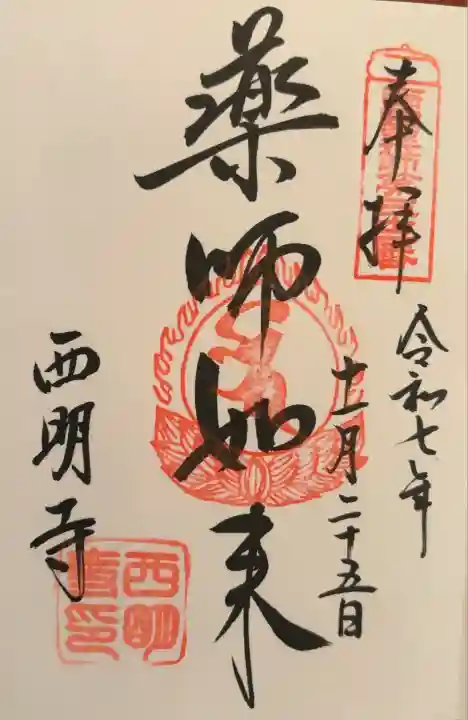 奉拝
令和七年
十一月二十五日
薬師如来
西明寺
西明